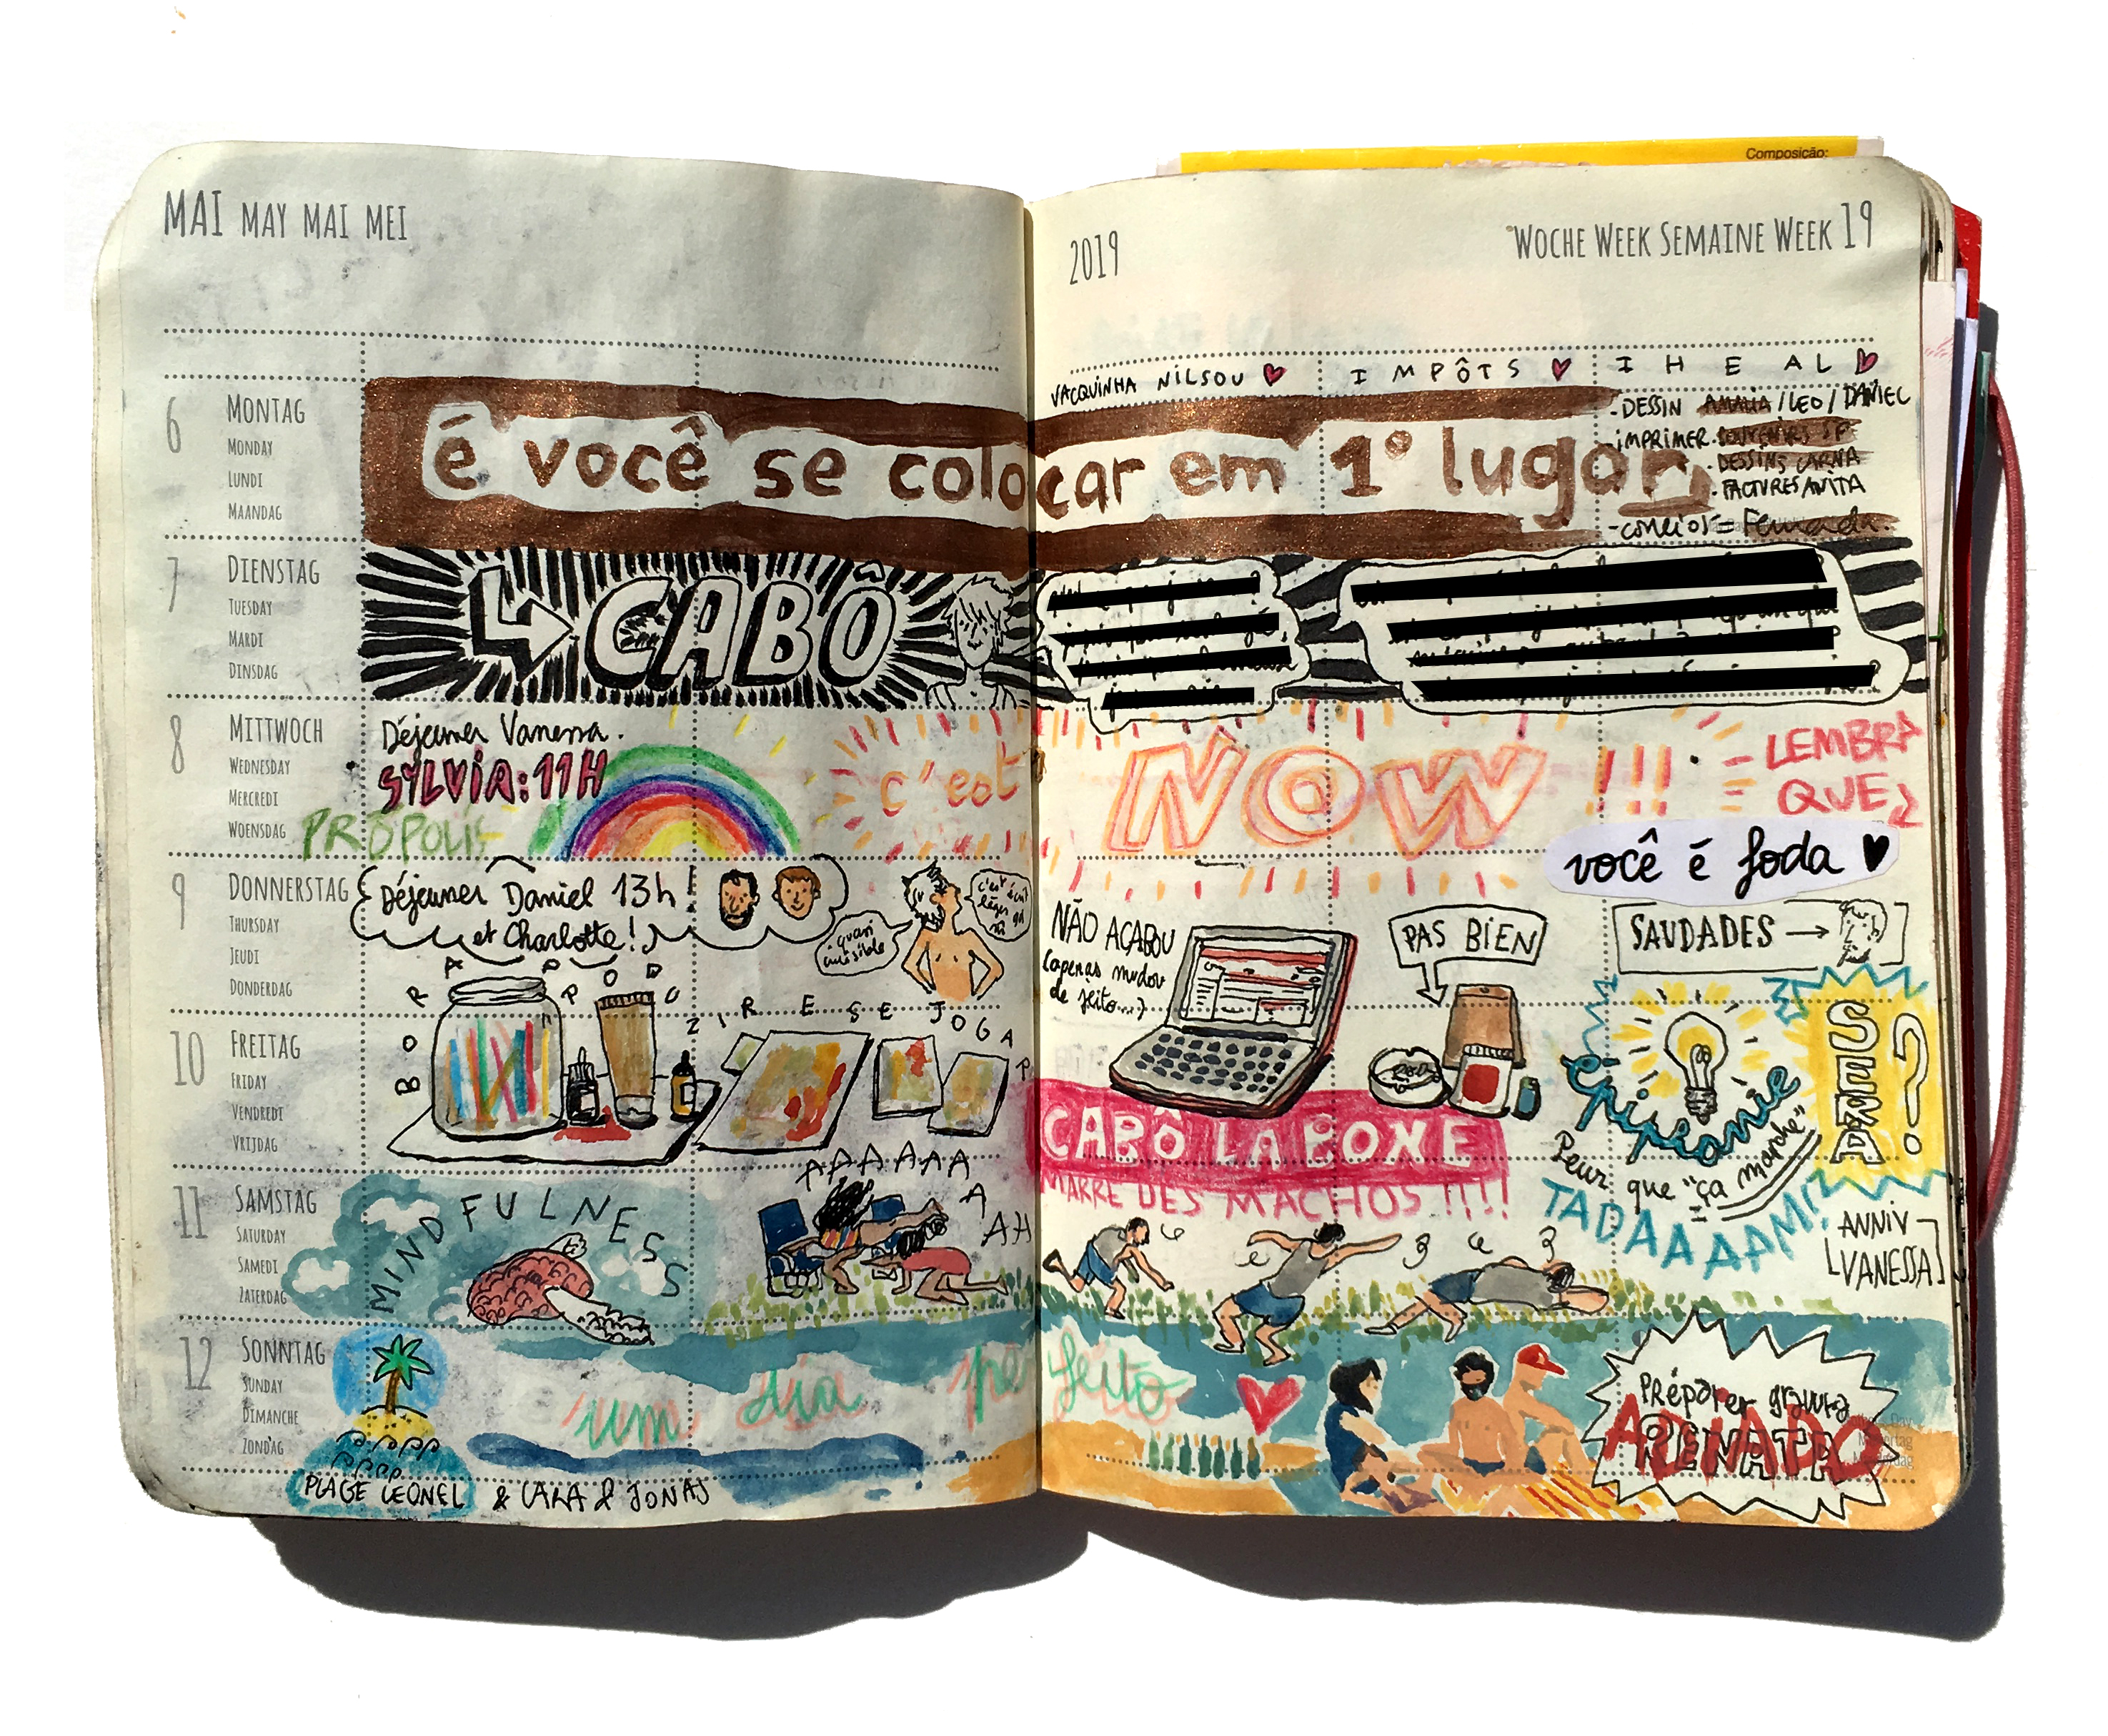 Composição:
MAI MAY MAI MEI
2019
WOCHE WEEK SEMAINE WEEK 19
VACQUINHA NILSOU
IMPÔTS
IHEAL
6
MONTAG
MONDAY
LUNDI
MAANDAG
é você se colocar em 1º lugar
- DESSIN AMALIA / LEO / DANIEL
- IMPRIMER. SOUVENIRS SP
. DESSINS CARNA
. FACTURES ANITA
7
DIENSTAG
TUESDAY
MARDI
DINSDAG
CABÔ
8
MITTWOCH
WEDNESDAY
MERCREDI
WOENSDAG
Déjeuner Vanessa.
SYLVIA: 11H
PRÓPOLIS
c'est NOW !!!
LEMBRA
QUE
você é foda
9
DONNERSTAG
THURSDAY
JEUDI
DONDERDAG
Déjeuner Daniel 13h
et Charlotte!
NÃO ACABOU
(apenas mudou
de jeito...)
PAS BIEN
SAUDADES →
10
FREITAG
FRIDAY
VENDREDI
VRIJDAG
BORA PRODUZIR E SE JOGAR
CABÔ LA BOXE
MARRE DES MACHOS !!!!
épiphanie
Peur que "ça marche"
SERA ?
TADAAAAM!
11
SAMSTAG
SATURDAY
SAMEDI
ZATERDAG
MINDFULNESS
AAAAAAAAH
ANNIV
VANESSA
12
SONNTAG
SUNDAY
DIMANCHE
ZONDAG
um dia perfeito
Préparer
RENATA
PLAGE LEONEL & LARA & JONAS